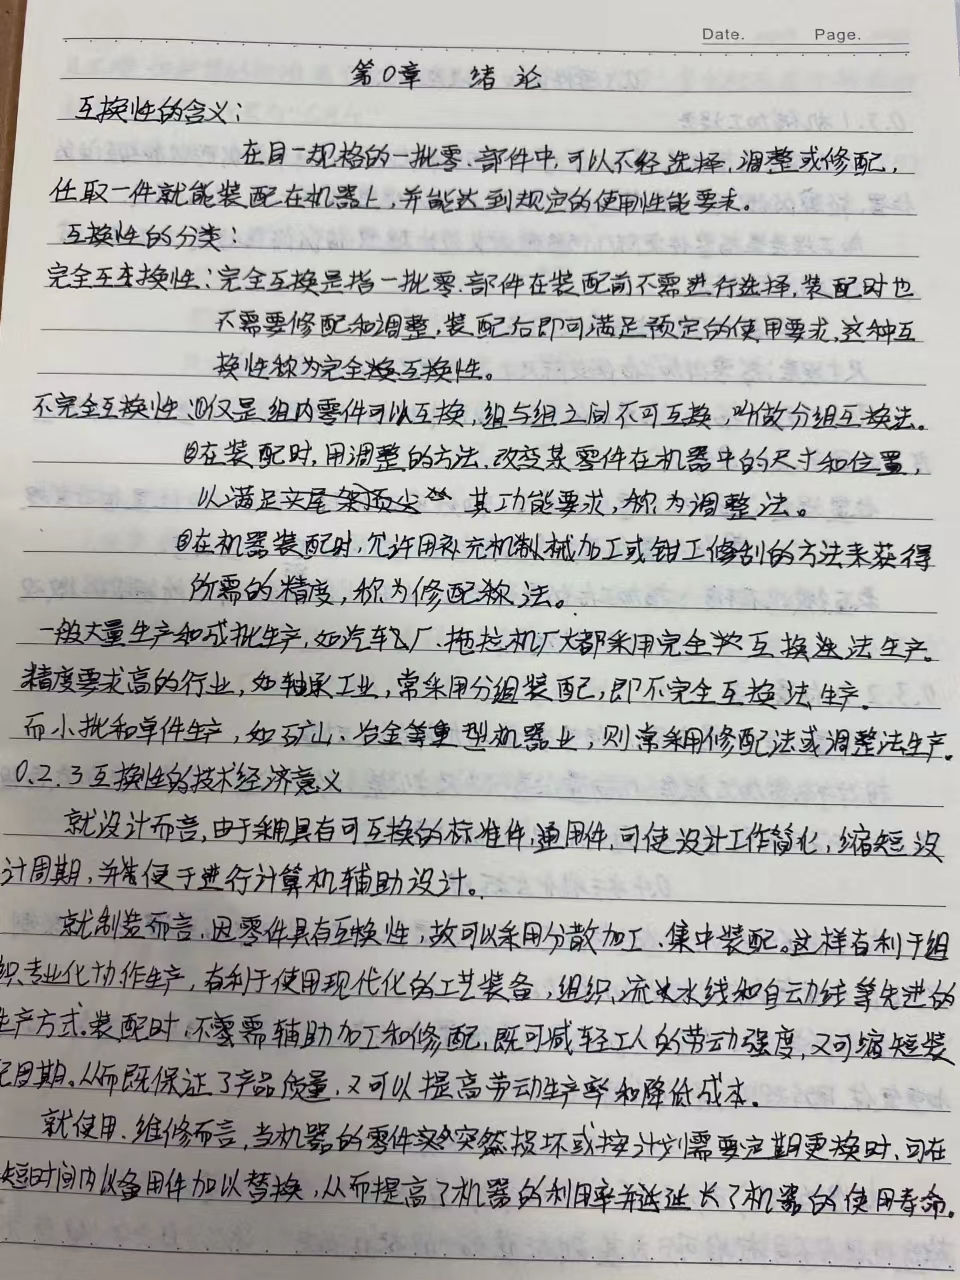 Date. Page.
第0章 绪论
互换性的含义：
在同一规格的一批零、部件中，可以不经选择、调整或修配，
任取一件就能装配在机器上，并能达到规定的使用性能要求。
互换性的分类：
完全互换性：完全互换是指一批零、部件在装配前不需进行选择，装配时也
不需要修配和调整，装配后即可满足预定的使用要求，这种互
换性称为完全互换性。
不完全互换性：①仅是组内零件可以互换，组与组之间不可互换，叫做分组互换法。
②在装配时，用调整的方法，改变某零件在机器中的尺寸和位置，
以满足其功能要求，称为调整法。
③在机器装配时，允许用补充机械加工或钳工修刮的方法来获得
所需的精度，称为修配法。
一般大量生产和成批生产，如汽车厂、拖拉机厂大都采用完全互换法生产。
精度要求高的行业，如轴承工业，常采用分组装配，即不完全互换法生产。
而小批和单件生产，如矿山、冶金等重型机器业，则常采用修配法或调整法生产。
0.2.3互换性的技术经济意义
就设计而言，由于采用具有可互换的标准件，通用件，可使设计工作简化，缩短设
计周期，并能便于进行计算机辅助设计。
就制造而言，因零件具有互换性，故可以采用分散加工、集中装配。这样有利于组
织专业化协作生产，有利于使用现代化的工艺装备，组织流水线和自动线等先进的
生产方式。装配时，不需辅助加工和修配，既可减轻工人的劳动强度，又可缩短装
配周期。从而既保证了产品质量，又可以提高劳动生产率和降低成本。
就使用、维修而言，当机器的零件突然损坏或按计划需要定期更换时，可在
短时间内以备用件加以替换，从而提高了机器的利用率并延长了机器的使用寿命。